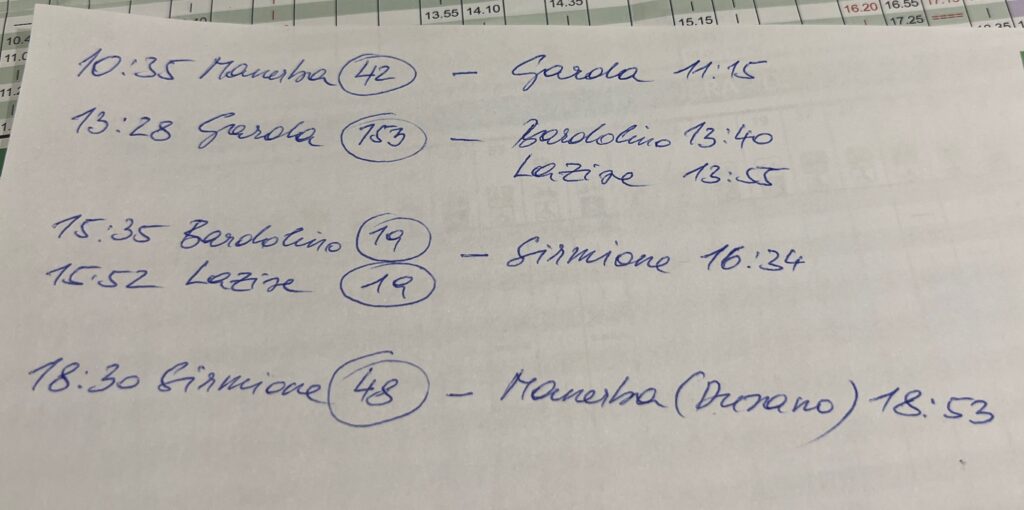 13.55 14.10
14.35
15.15
16.20 16.55
17.25
10:35 Manerba 42 – Garda 11:15
13:28 Garda 153 – Bardolino 13:40
Lazise 13:55
15:35 Bardolino 19
15:52 Lazise 19 – Sirmione 16:34
18:30 Sirmione 48 – Manerba (Dusano) 18:53